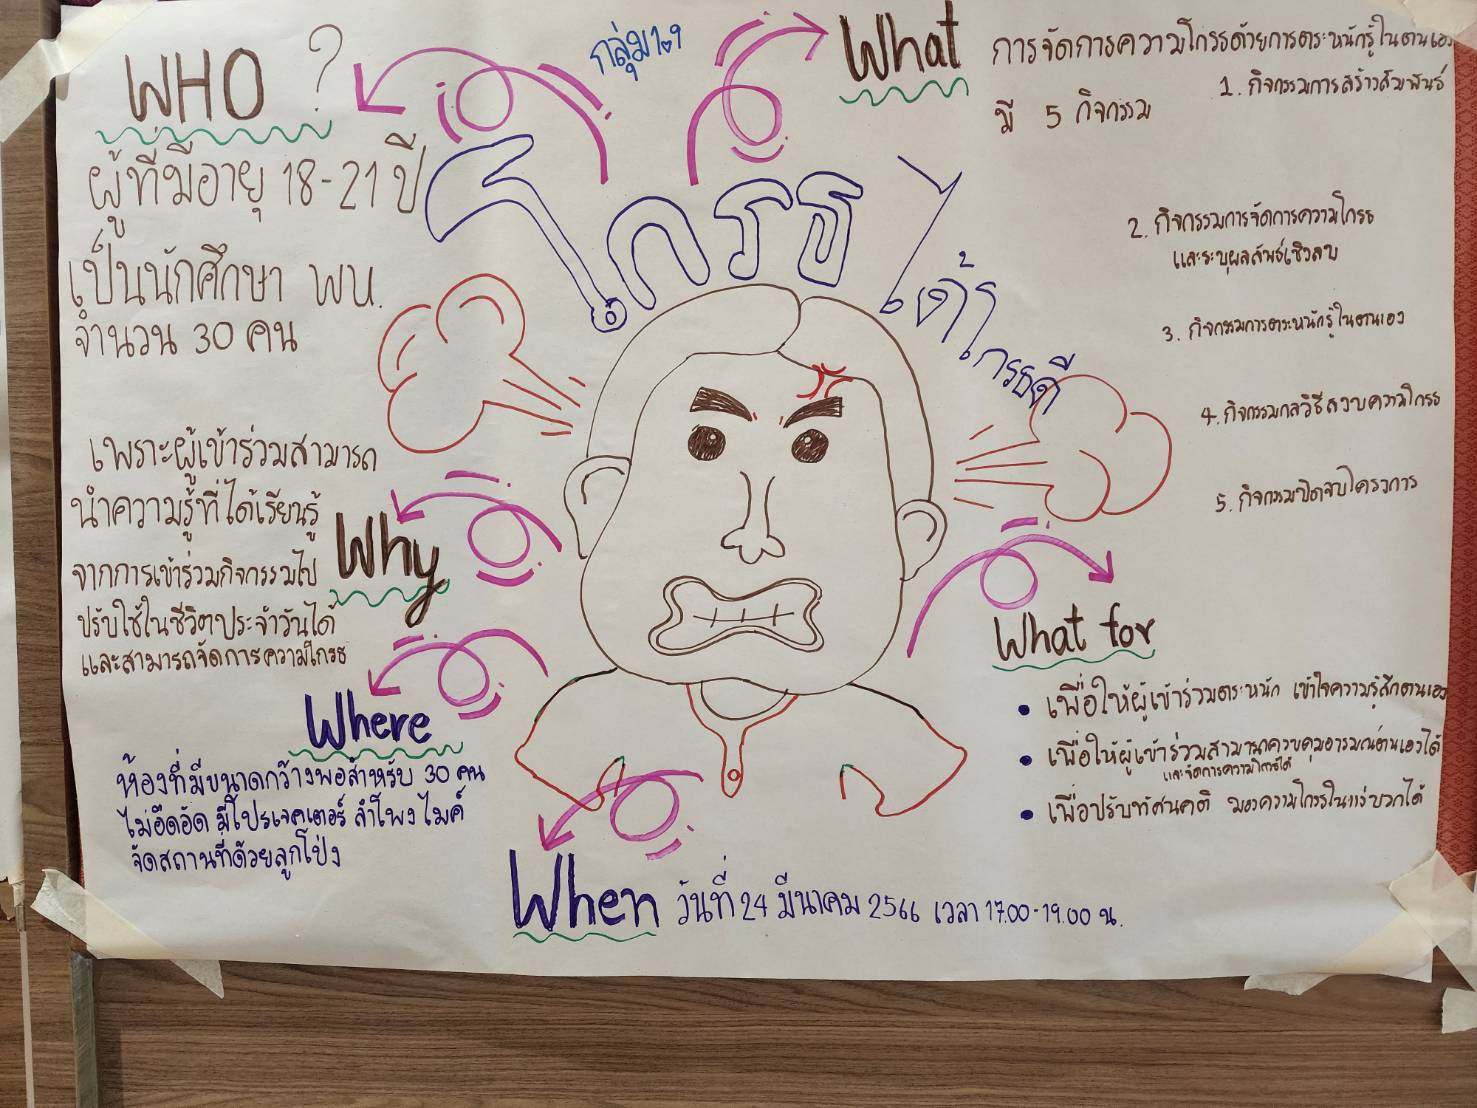 WHO ?
ผู้ที่มีอายุ 18-21 ปี
เป็นนักศึกษา พบ.
จำนวน 30 คน
กลุ่ม
What
การจัดการความโกรธด้วยการตระหนักรู้ในตนเอง
มี 5 กิจกรรม
1. กิจกรรมการสร้างสัมพันธ์
2. กิจกรรมการจัดการความโกรธ
และระบุผลลัพธ์เชิงลบ
3. กิจกรรมการตระหนักรู้ในตนเอง
4. กิจกรรมกลวิธีสงบความโกรธ
5. กิจกรรมปิดจบโครงการ
โกรธได้
โกรธดี
Why
เพราะผู้เข้าร่วมสามารถ
นำความรู้ที่ได้เรียนรู้
จากการเข้าร่วมกิจกรรมไป
ปรับใช้ในชีวิตประจำวันได้
และสามารถจัดการความโกรธ
Where
ห้องที่มีขนาดกว้างพอสำหรับ 30 คน
ไม่อึดอัด มีโปรเจคเตอร์ ลำโพง ไมค์
จัดสถานที่ด้วยลูกโป่ง
What for
• เพื่อให้ผู้เข้าร่วมตระหนัก เข้าใจความรู้สึกตนเอง
• เพื่อให้ผู้เข้าร่วมสามารถควบคุมอารมณ์ตนเองได้
และจัดการความโกรธได้
• เพื่อปรับทัศนคติ มองความโกรธในแง่บวกได้
When วันที่ 24 มีนาคม 2566 เวลา 17.00-19.00 น.